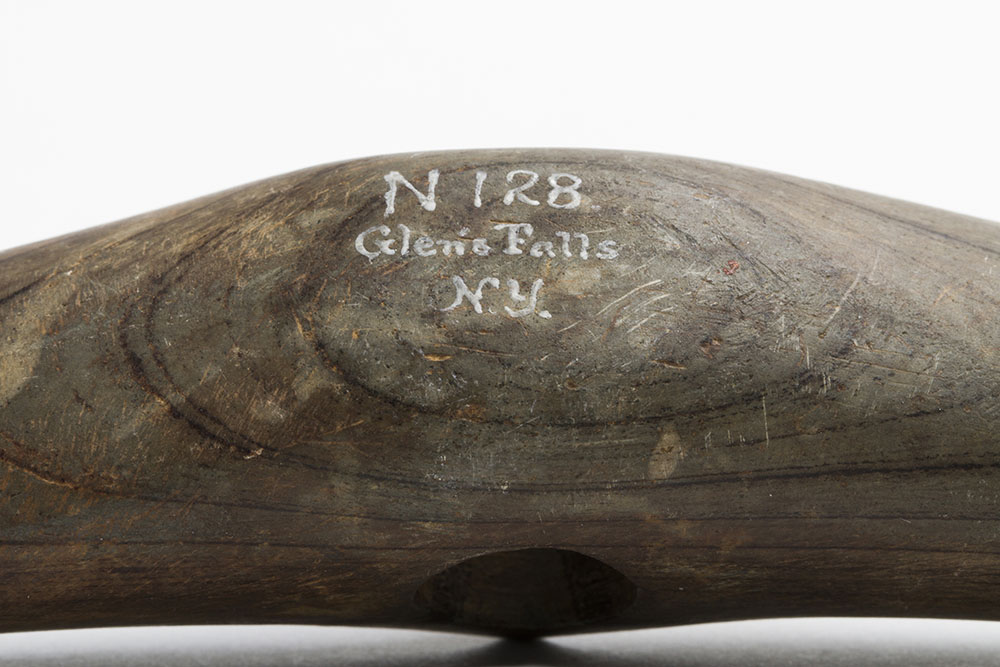 N 128
Glen's Falls
N.Y.